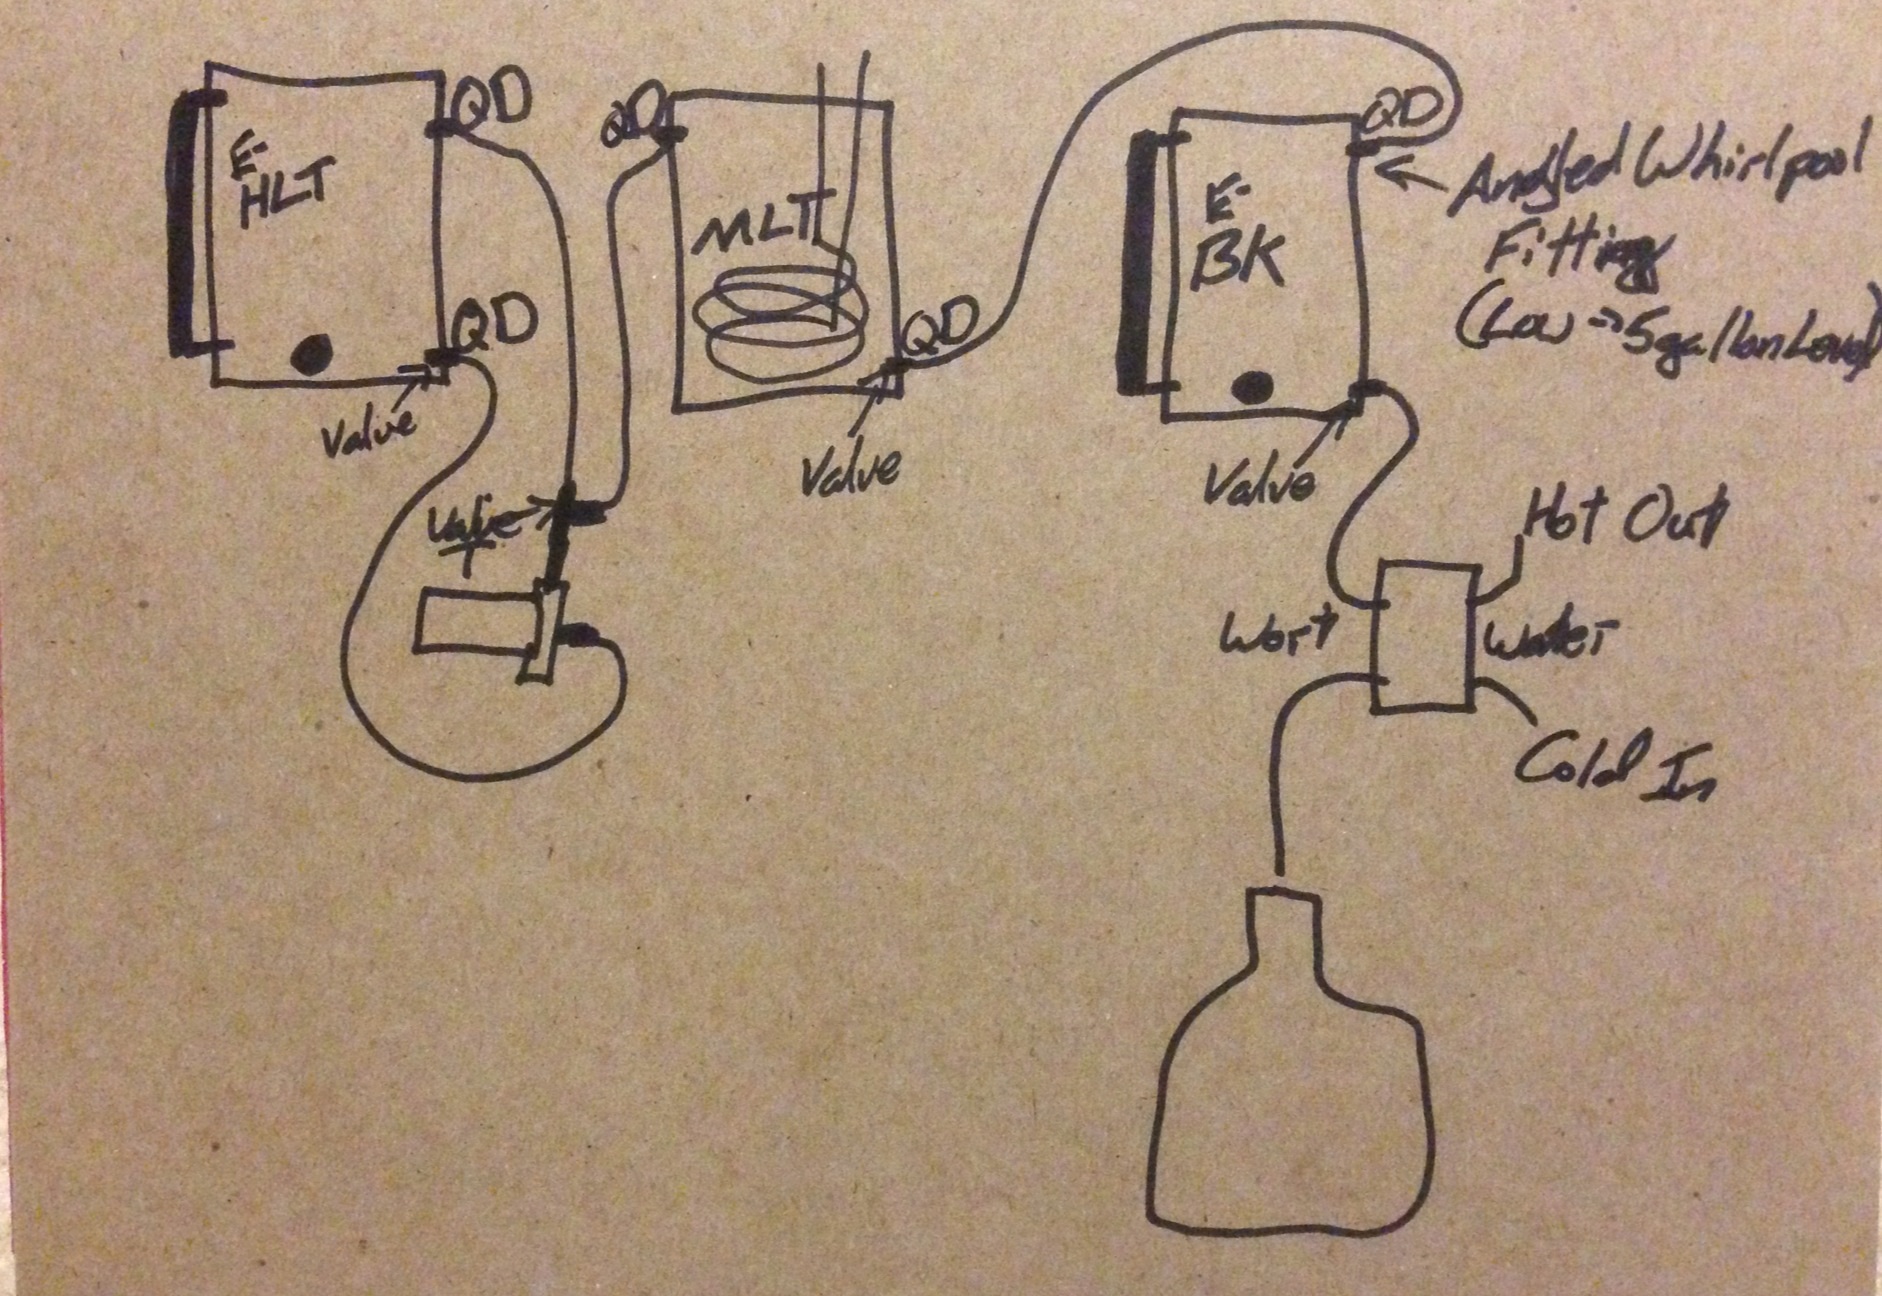 QD
E-
HLT
QD
Valve
Valve
QD
MLT
QD
Valve
QD
E-
BK
Valve
Angled Whirlpool
Fitting
(Low → 5 gallon Level)
Hot Out
Wort
Water
Cold In